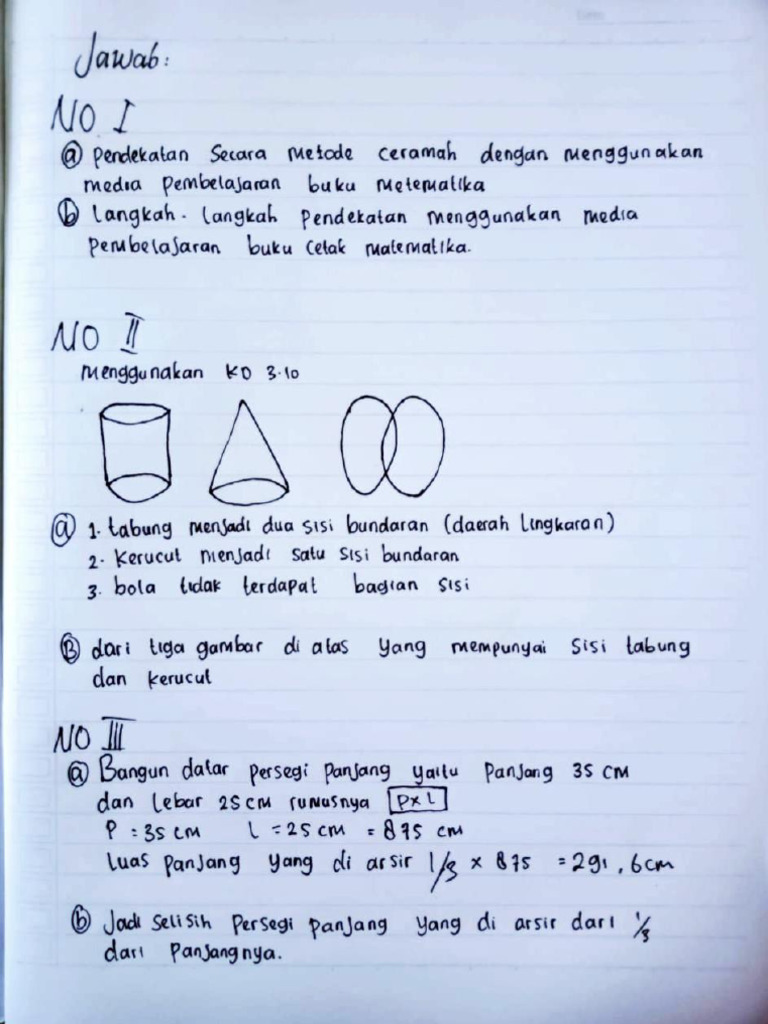 Jawab:
NO I
a Pendekatan Secara Metode ceramah dengan menggunakan
media Pembelajaran buku Metematika
b Langkah - langkah Pendekatan menggunakan media
Pembelajaran buku cetak matematika.
NO II
Menggunakan KD 3.10
a 1. tabung menjadi dua sisi bundaran (daerah lingkaran)
2. Kerucut menjadi satu sisi bundaran
3. bola tidak terdapat bagian sisi
B dari tiga gambar di atas yang mempunyai sisi tabung
dan kerucut
NO III
a Bangun datar persegi panjang yaitu Panjang 35 cm
dan lebar 25 cm rumusnya P x L
P = 35 cm L = 25 cm = 875 cm
Luas panjang yang di arsir 1/3 x 875 = 291,6 cm
b Jadi selisih Persegi panjang yang di arsir dari 1/3
dari Panjangnya.